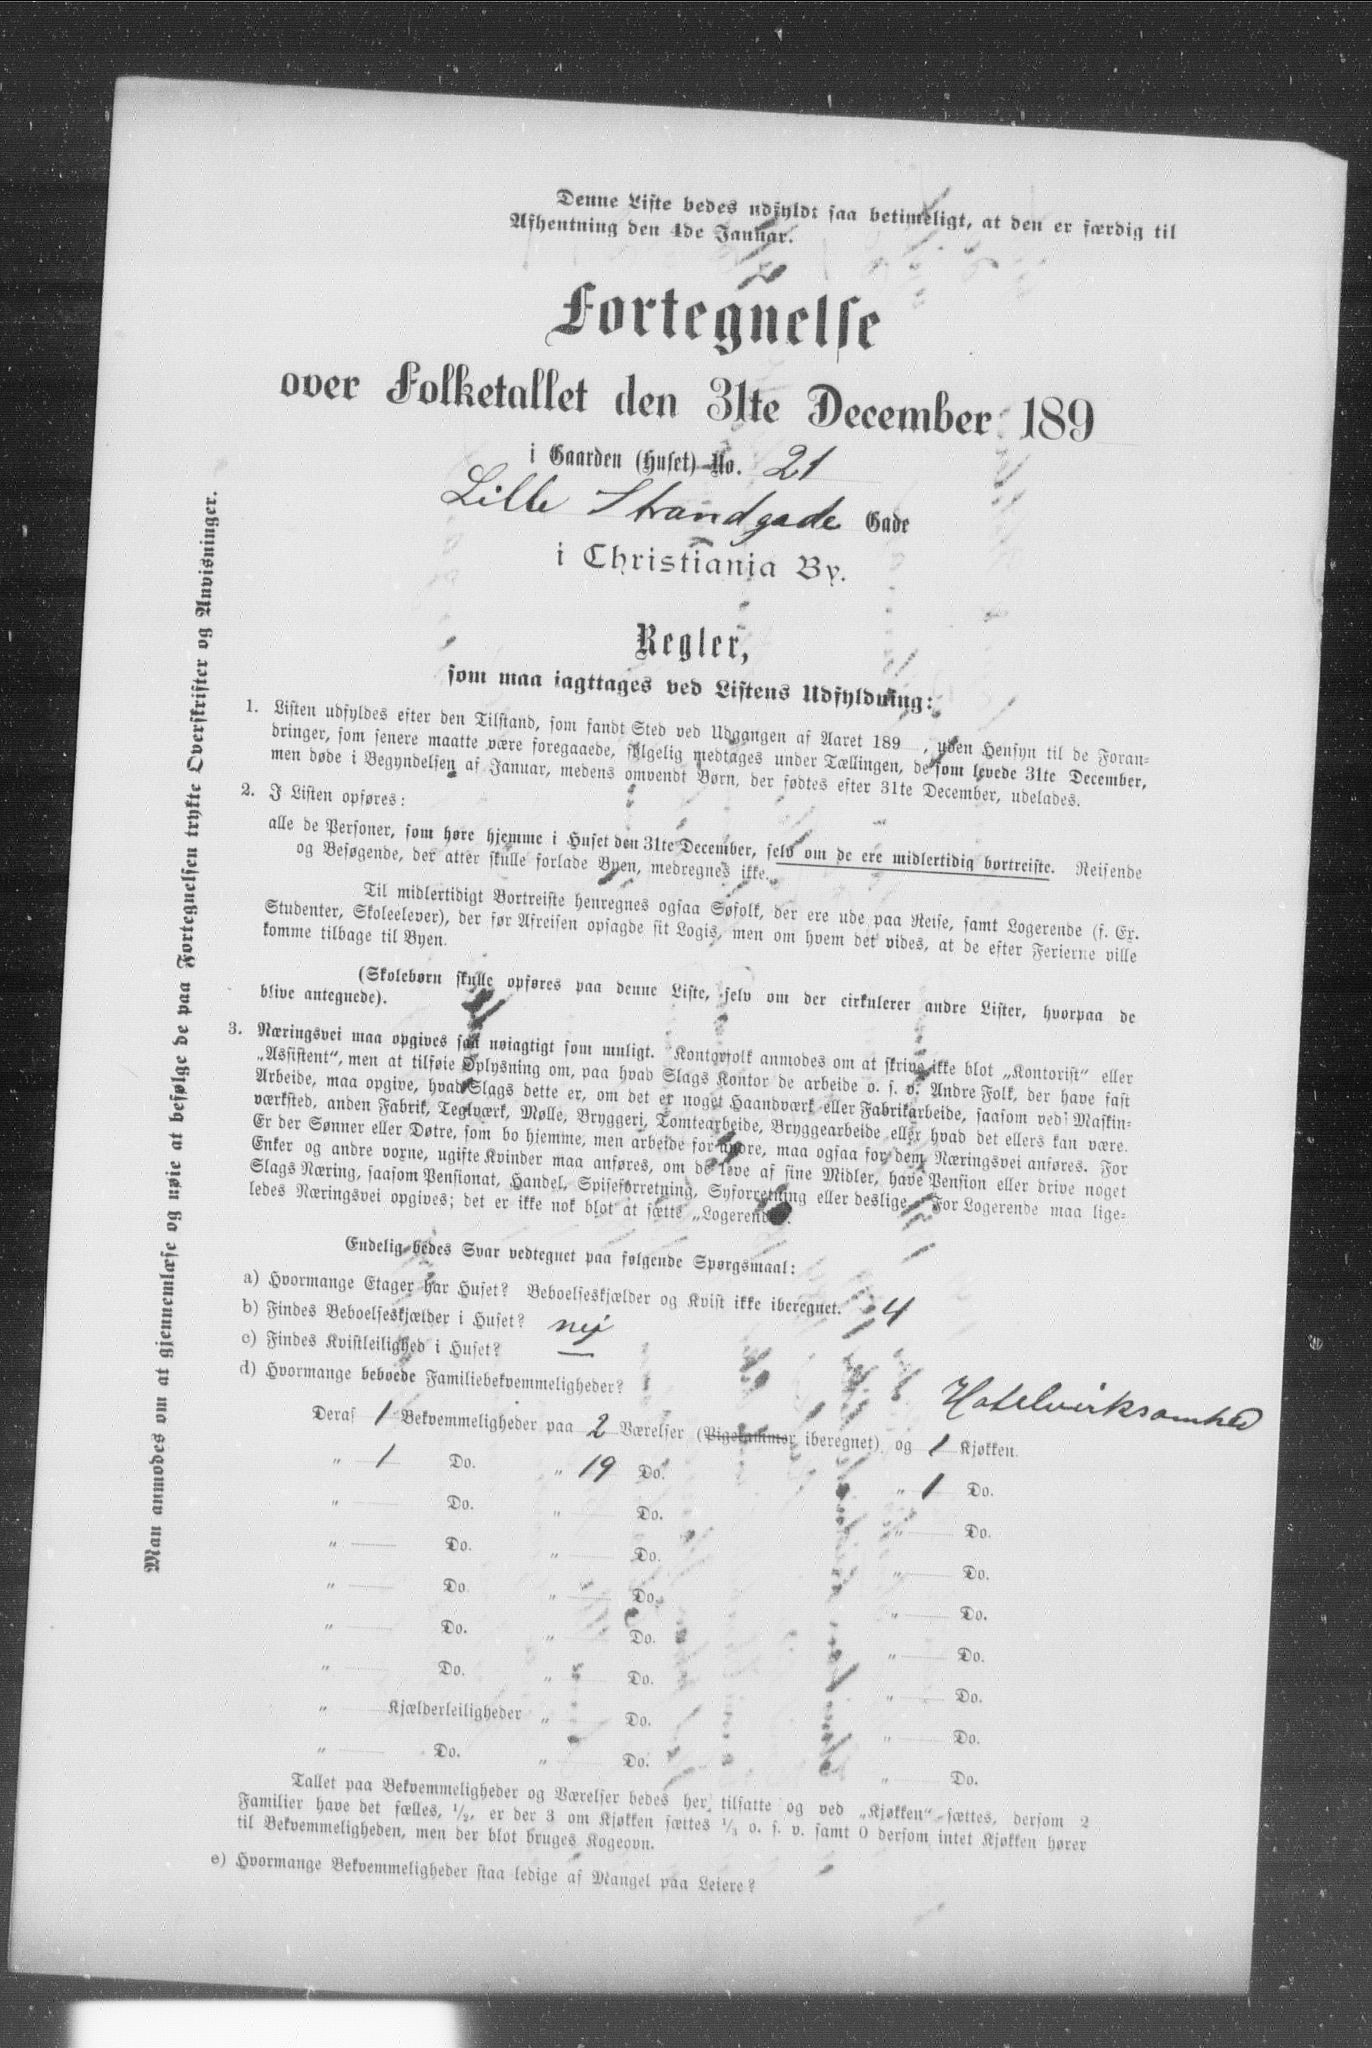 Denne Liste bedes udfyldt saa betimeligt, at den er færdig til
Afhentning den 4de Januar.
Fortegnelse
over Folketallet den 31te December 189
i Gaarden (Huset) No. 21
Lille Strandgade Gade
i Christiania By.
Regler,
som maa iagttages ved Listens Udfyldning:
1. Listen udfyldes efter den Tilstand, som fandt Sted ved Udgangen af Aaret 189 , uden Hensyn til de Foran-
dringer, som senere maatte være foregaaede, følgelig medtages under Tællingen, de som levede 31te December,
men døde i Begyndelsen af Januar, medens omvendt Børn, der fødtes efter 31te December, udelades.
2. I Listen opføres:
alle de Personer, som høre hjemme i Huset den 31te December, selv om de ere midlertidig bortreiste. Reisende
og Besøgende, der atter skulle forlade Byen, medregnes ikke.
Til midlertidigt Bortreiste henregnes ogsaa Søfolk, der ere ude paa Reise, samt Logerende (f. Ex.
Studenter, Skoleelever), der før Afreisen opsagde sit Logis, men om hvem det vides, at de efter Ferierne ville
komme tilbage til Byen.
(Skolebørn skulle opføres paa denne Liste, selv om der cirkulerer andre Lister, hvorpaa de
blive antegnede).
3. Næringsvei maa opgives saa nøiagtigt som muligt. Kontorfolk anmodes om at skrive ikke blot „Kontorist“ eller
„Assistent“, men at tilføie Oplysning om, paa hvad Slags Kontor de arbeide o. s. v. Andre Folk, der have fast
Arbeide, maa opgive, hvad Slags dette er, om det er noget Haandværk eller Fabrikarbeide, saasom ved Maskin-
værksted, anden Fabrik, Teglværk, Mølle, Bryggeri, Tomtearbeide, Bryggearbeide eller hvad det ellers kan være.
Er der Sønner eller Døtre, som bo hjemme, men arbeide for andre, maa ogsaa for dem Næringsvei anføres. For
Enker og andre voxne, ugifte Kvinder maa anføres, om de leve af sine Midler, have Pension eller drive noget
Slags Næring, saasom Pensionat, Handel, Spiseforretning, Syforretning eller deslige. For Logerende maa lige-
ledes Næringsvei opgives; det er ikke nok blot at sætte „Logerende“.
Endelig bedes Svar vedtegnet paa følgende Spørgsmaal:
a) Hvormange Etager har Huset? Beboelseskjælder og Kvist ikke iberegnet. 4
b) Findes Beboelseskjælder i Huset? nej
c) Findes Kvistleilighed i Huset? —
d) Hvormange beboede Familiebekvemmeligheder?
Hotelvirksomhed
Deraf 1 Bekvemmeligheder paa 2 Værelser (Pigekammer iberegnet) og 1 Kjøkken.
„ 1 Do. „ 19 Do. „ 1 Do.
„ Do. „ Do. „ Do.
„ Do. „ Do. „ Do.
„ Do. „ Do. „ Do.
„ Do. „ Do. „ Do.
„ Do. „ Do. „ Do.
„ Kjælderleiligheder „ Do. „ Do.
„ Do. „ Do. „ Do.
Tallet paa Bekvemmeligheder og Værelser bedes her tilsatte og ved „Kjøkken“ sættes, dersom 2
Familier have det fælles, 1/2, er der 3 om Kjøkken sættes 1/3 o. s. v. samt 0 dersom intet Kjøkken hører
til Bekvemmeligheden, men der blot bruges Kogeovn.
e) Hvormange Bekvemmeligheder staa ledige af Mangel paa Leiere?
Man anmodes om at gjennemlæse og nøie at befølge de paa Fortegnelsen trykte Overskrifter og Anvisninger.